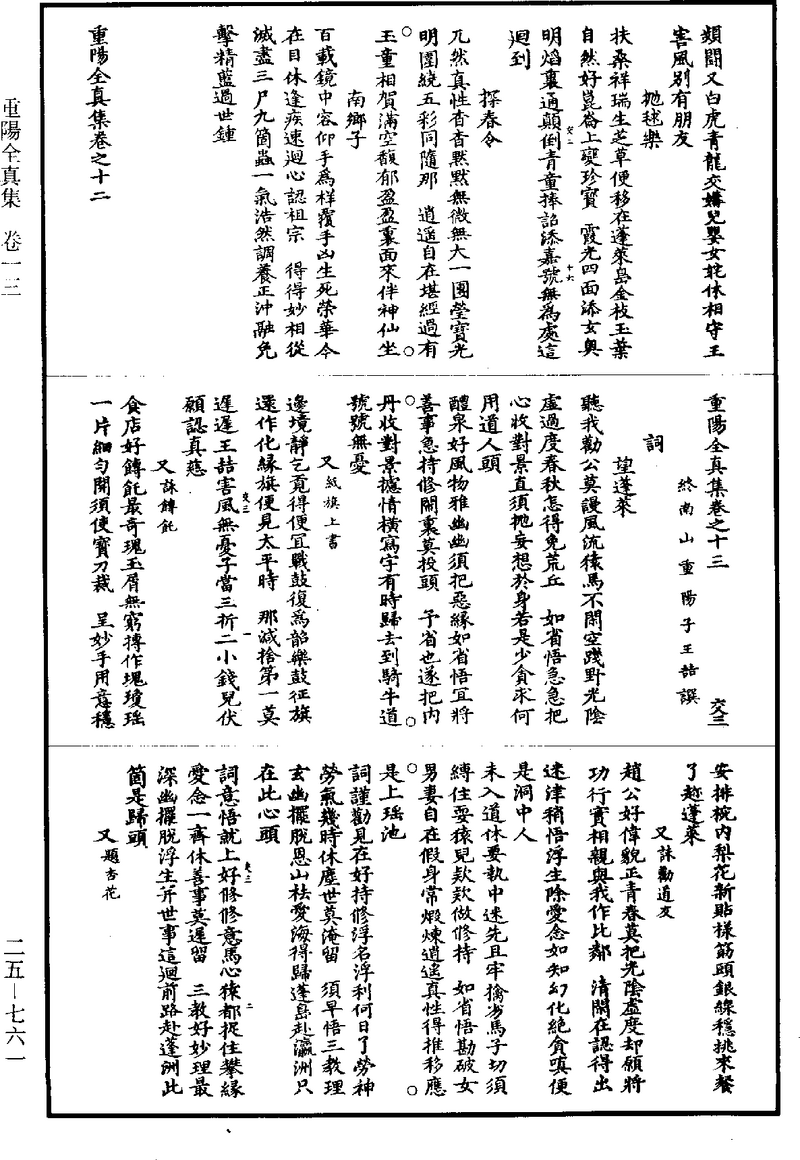 類鬪又白虎青龍交媾兒嬰女姹休相守王
害風別有朋友
抛毬樂
扶桑祥瑞生芝草便移在蓬萊島金枝玉葉
自然好崑崙上變珍寶　霞光四面添玄奧
明焰裏通顛倒青童捧詔添嘉號無爲處這
迴到
探春令
兀然真性杳杳默默無微無大一團瑩寶光
明圍繞五彩同隨那　逍遥自在堪經過有
玉童相賀滿空馥郁盈盈裏面來伴神仙坐
南鄉子
百載鏡中容仰手爲样覆手凶生死榮華今
在目休逢疾速迴心認祖宗　得得妙相從
滅盡三尸九箇蟲一氣浩然調養正沖融免
擊精藍過世鍾
重陽全真集卷之十二
重陽全真集卷之十三　交三
終南山重陽子王喆譔
詞
望蓬萊
聽我勸公莫謾風流猿馬不閑空踐野光陰
虚過度春秋怎得免荒丘　如省悟急急把
心收對景直須抛妄想於身若是少貪求何
用道人頭
醴泉好風物雅幽幽須把惡緣如省悟宜將
善事急持修鬧裏莫投頭　予省也遂把内
丹收對景攄情横寫字有時歸去到騎牛道
號號無憂
又紙旗上書
邊境靜乞覓得便宜戰鼓復爲韶樂鼓征旗
還作化緣旗便見太平時　那減捨第一莫
遲遲王喆害風無憂子當三折二小錢兒伏
願認真慈
又詠餺飥
食店好餺飥最奇瑰玉屑無窮摶作塊瓊瑶
一片細勻開須使寶刀裁　呈妙手用意穩
安排椀内梨花新貼樣筯頭銀線穩挑來餐
了趂蓬萊
又詠勸道友
趙公好偉貌正青春莫把光陰虚度却願將
功行實相親與我作比鄰　清閑在認得出
迷津稍悟浮生除愛念如知幻化絶貪嗔便
是洞中人
未入道休要執中迷先且牢擒劣馬子切須
縛住耍猿兒欵欵做修持　如省悟勘破女
男妻自在假身常煅煉逍遥真性得推移應
是上瑶池
詞謹勸見在好持修浮名浮利何日了勞神
勞氣幾時休塵世莫淹留　須早悟三教理
玄幽擺脱恩山袪愛海得歸蓬島赴瀛洲只
在此心頭
詞意悟就上好修修意馬心猿都捉住攀緣
愛念一齊休善事莫遲留　三教好妙理最
深幽擺脱浮生并世事這迴前路赴蓬洲此
箇是歸頭
又題杏花
重陽全真集　卷一三
二五—七六一